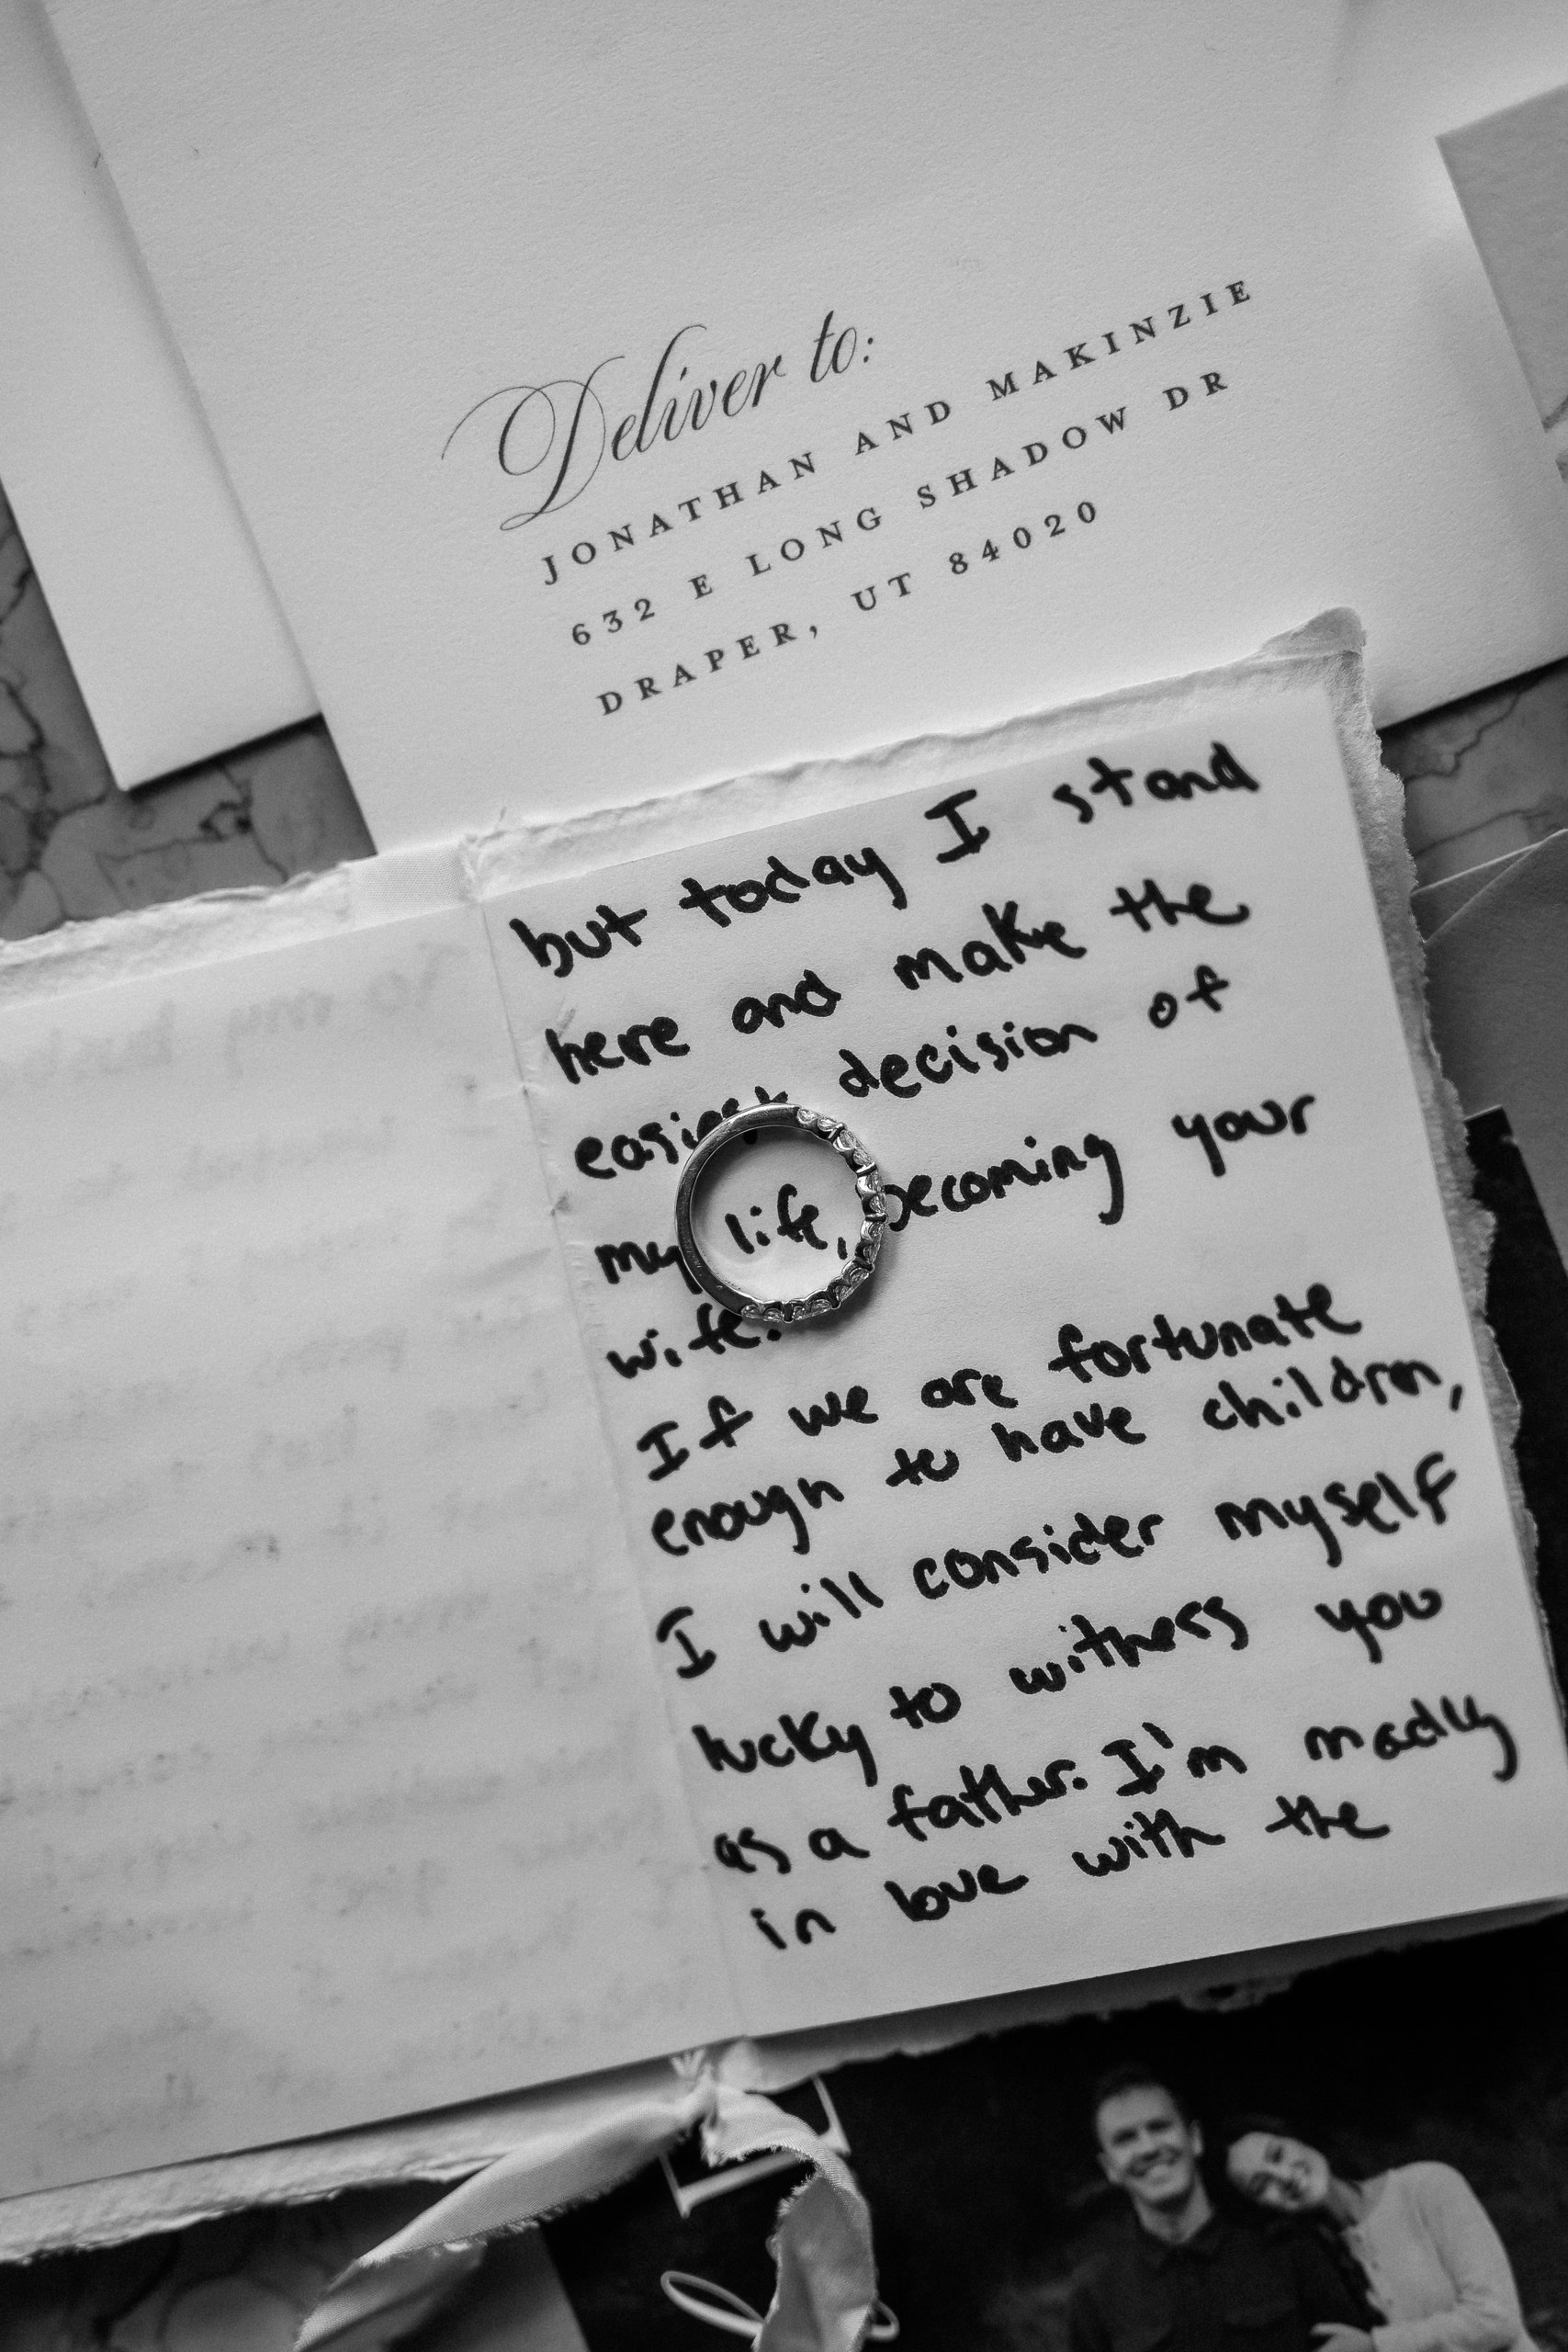 Deliver to:
JONATHAN AND MAKINZIE
632 E LONG SHADOW DR
DRAPER, UT 84020
but today I stand
here and make the
easiest decision of
my life, becoming your
wife.
If we are fortunate
enough to have children,
I will consider myself
lucky to witness you
as a father. I'm madly
in love with the